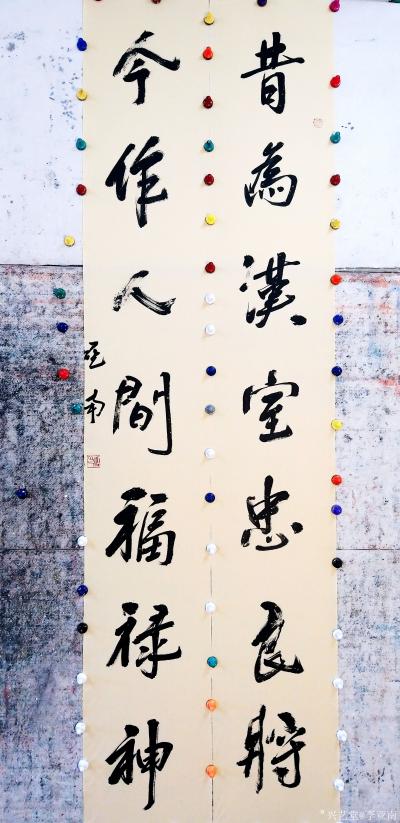 昔為漢室忠良將
今作人間福祿神
亚南
兴艺堂@李亚南